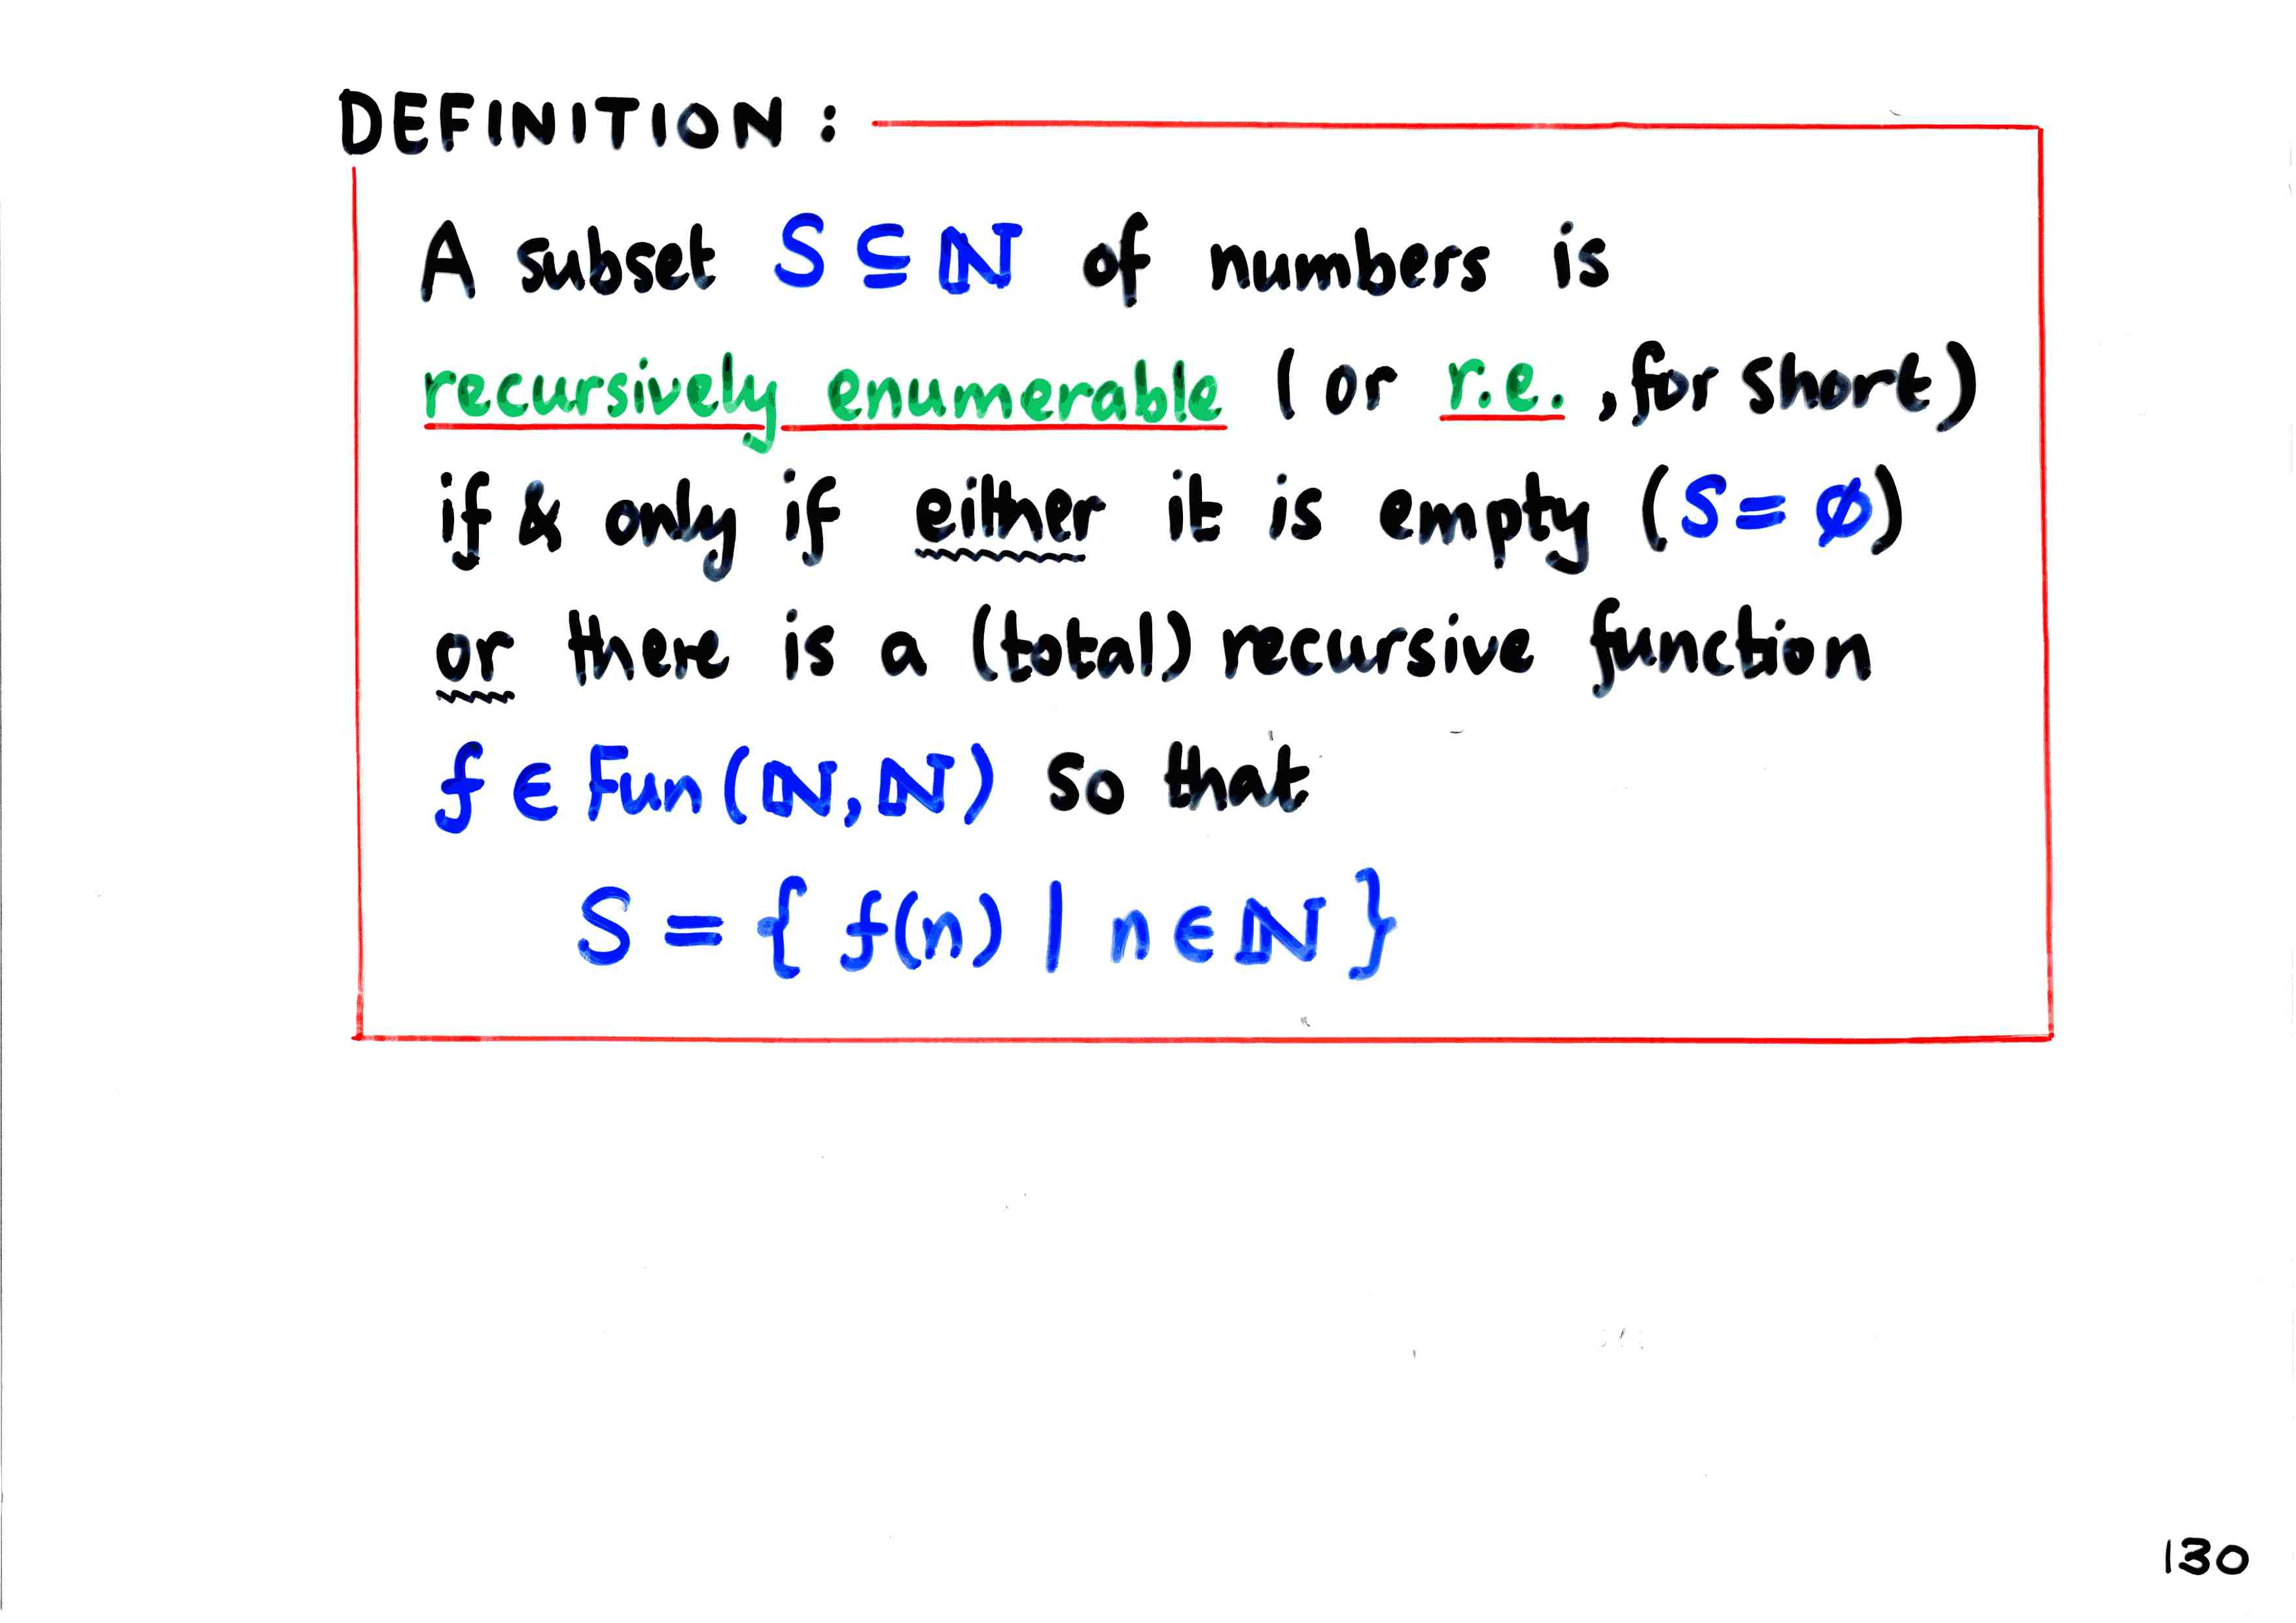 DEFINITION:
A subset S ⊆ ℕ of numbers is
recursively enumerable (or r.e., for short)
if & only if either it is empty (S = ∅)
or there is a (total) recursive function
f ∈ Fun(ℕ,ℕ) so that
S = { f(n) | n ∈ ℕ }
130